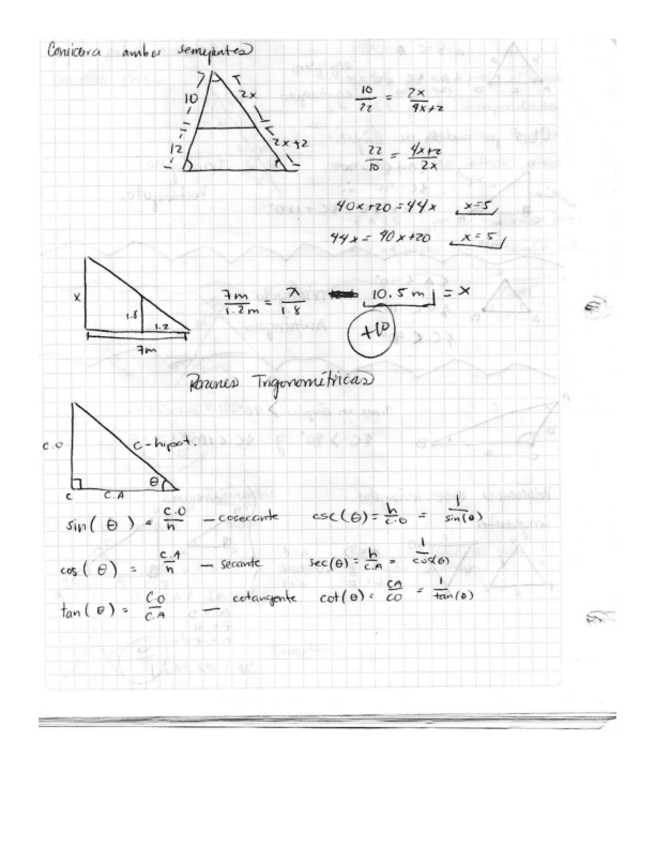 Considera ambos semejantes
10
2x
12
2x+2
10/22 = 2x/4x+2
22/10 = 4x+2/2x
40x+20=44x x=5
44x=40x+20 x=5
x
1.8
1.2
7m
7m/1.2m = x/1.8 10.5 m = x
+10
Razones Trigonométricas
C.O
C-hipot.
θ
C
C.A
sin(θ) = C.O/h — cosecante csc(θ) = h/C.O = 1/sin(θ)
cos(θ) = C.A/h — secante sec(θ) = h/C.A = 1/cos(θ)
tan(θ) = C.O/C.A — cotangente cot(θ) = CA/CO = 1/tan(θ)